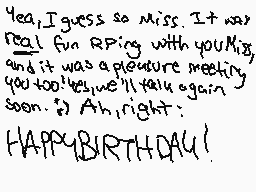 Yea, I guess so Miss. It was
real fun RPing with you Miss,
and it was a pleasure meeting
you too! Yes, we'll talk again
soon. :) Ah, right:
HAPPY BIRTHDAY!